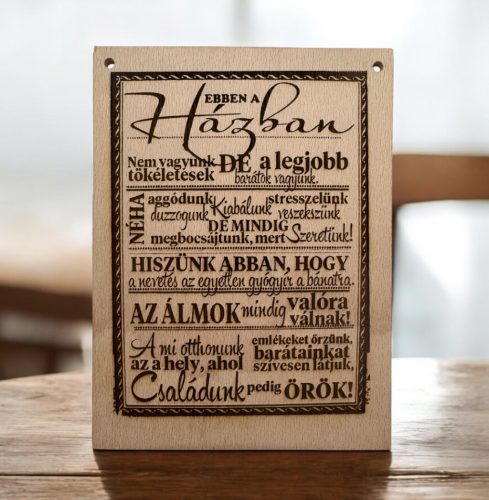 EBBEN A
Házban
Nem vagyunk DE a legjobb
tökéletesek barátok vagyunk.
NÉHA aggódunk Kiabálunk stresszelünk
duzzogunk veszekszünk
DE MINDIG
megbocsájtunk, mert Szeretünk!
HISZÜNK ABBAN, HOGY
a nevetés az egyetlen gyógyír a bánatra.
AZ ÁLMOK mindig valóra
válnak!
A mi otthonunk emlékeket őrzünk,
az a hely, ahol barátainkat
szívesen látjuk,
Családunk pedig ÖRÖK!